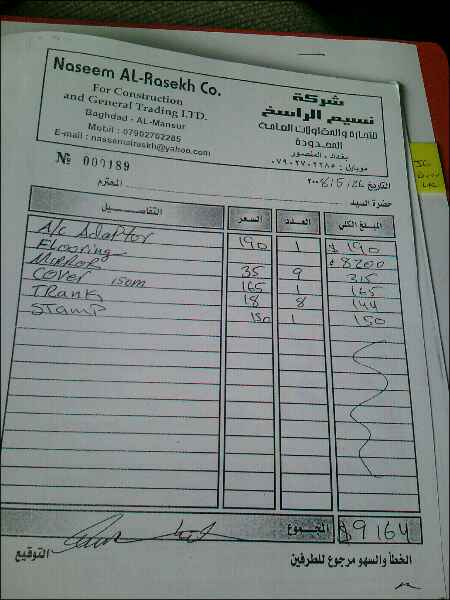 Naseem AL-Rasekh Co.
For Construction
and General Trading LTD.
Baghdad - AL-Mansur
Mobil : 07902702285
E-mail : nassemalraskh@yahoo.com
شركة
نسيم الراسخ
للتجارة والمقاولات العامة
المحدودة
بغداد - المنصور
موبايل : ٠٧٩٠٢٧٠٢٢٨٥
№ 000189
التاريخ
حضرة السيد المحترم
التفاصيل السعر العدد المبلغ الكلي
A/c Adaptor 190 1 $ 190
Flooring $ 8200
Mirror 35 9 315
Cover 150m 165 1 165
Trank 18 8 144
Stamp 150 1 150
المجموع $9164
الخطأ والسهو مرجوع للطرفين
التوقيع